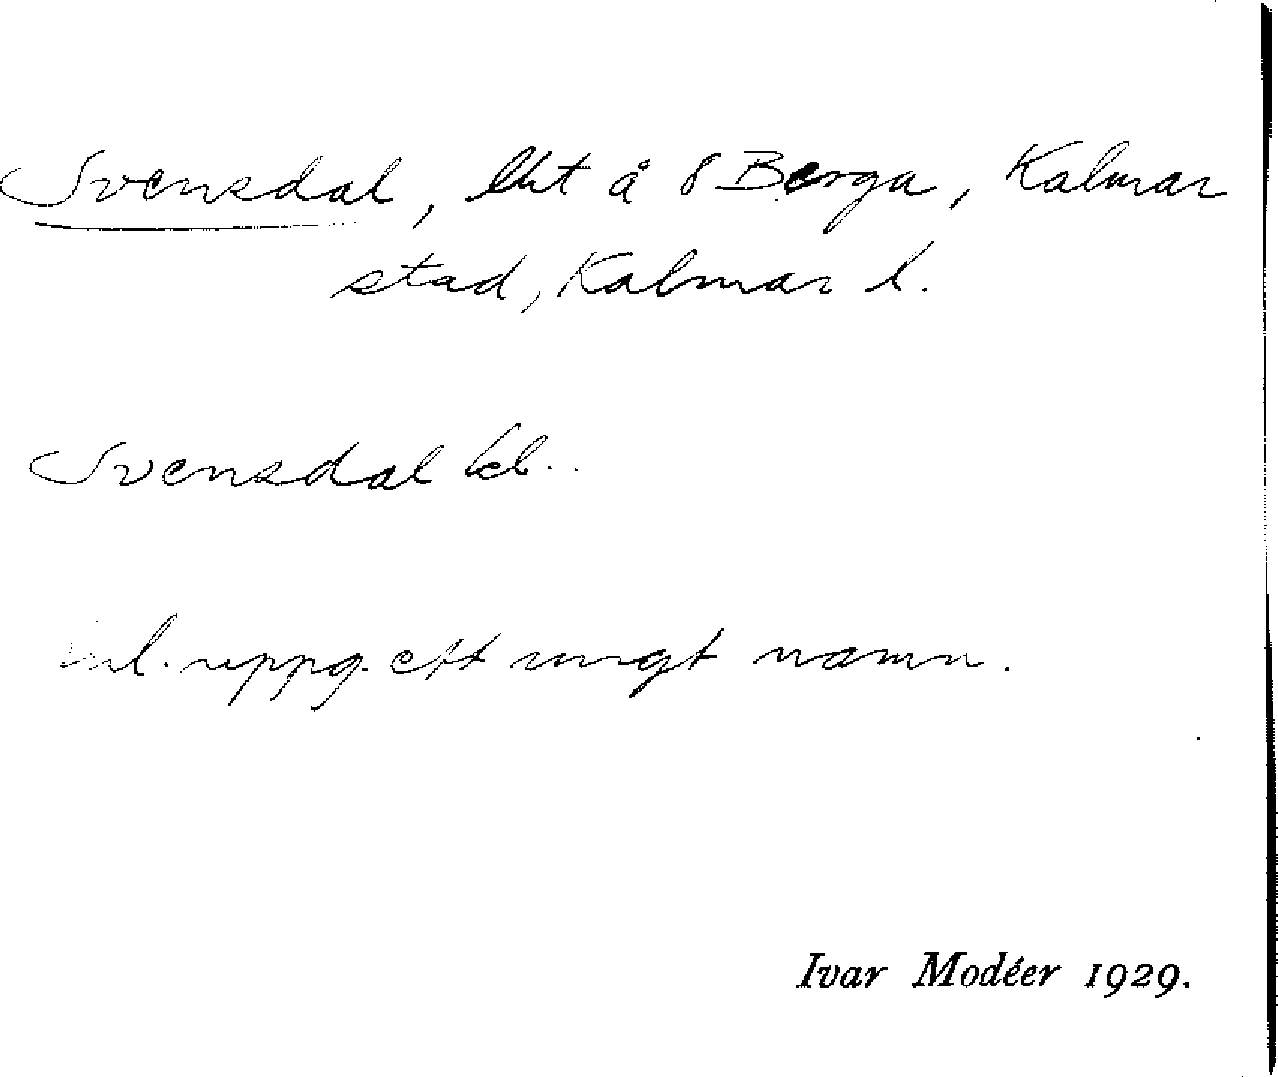 Svensdal, lht å 8 Berga, Kalmar
stad, Kalmar l.
Svensdal kl..
Enl. uppg. ett ungt namn.
Ivar Modéer 1929.